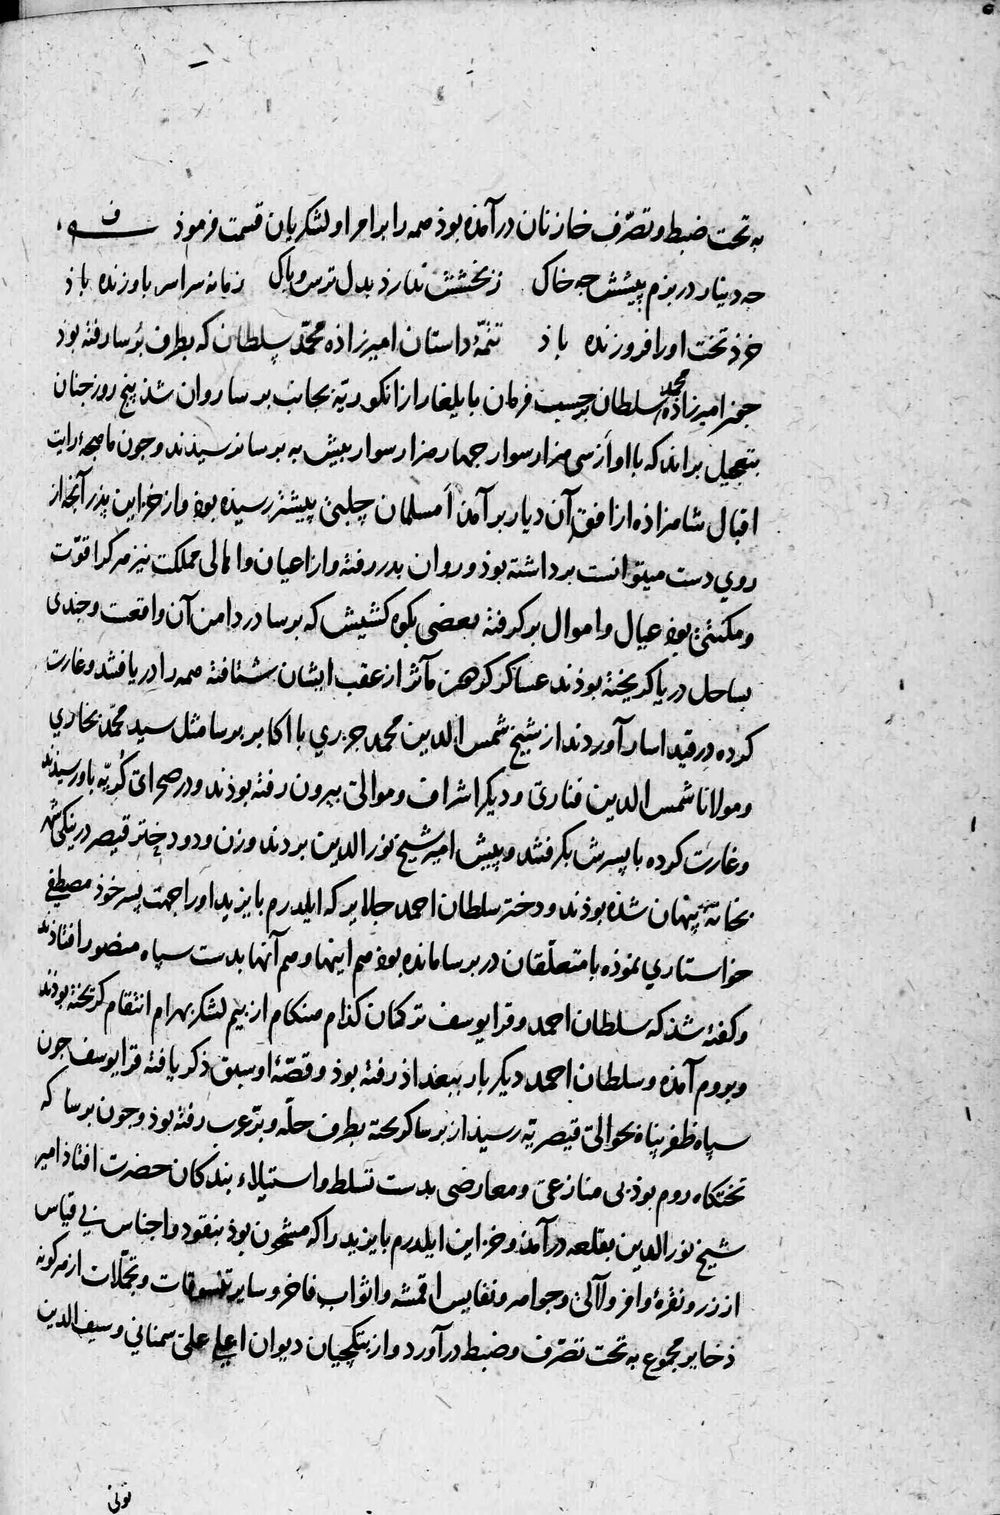 به تحت ضبط و تصرّف خازنان درآمذه بوذ همه را بر امرا و لشکریان قسمت فرموذ
جه دینار در بزم پیشش جه خاک ز بخشش ندارذ بدل ترس و باک زمانه سراسر باو زنده باذ
خرذ تخت اورا فروزنده باذ تتمّهٔ داستان امیرزاده محمّد سلطان که بطرف برسا رفته بوذ
جون امیرزاده محمد سلطان برحسب فرمان بایلغار از انکوریّه بجانب برسا روان شذ پنج روز جنان
بتعجیل براند که با او از سی هزار سوار جهار هزار سوار بیش به برسا نرسیذند و جون ماهجهٔ رایت
اقبال شاهزاذه از افق آن دیار برآمد امسلمان چلبی پیشتر رسیذه بوذ و از خزاین پذر آنج از
روی دست میتوانست برداشته بوذ و روان بدر رفته و از اعیان و اهالی مملکت نیز هر کرا قوّت
و مکنتی بوذ عیال و اموال بر کرفته بعضی بکوه کشیش که برسا در دامن آن واقعست و جندی
بساحل دریا کریخته بوذند عساکر کردون مآثر از عقب ایشان شتافته همه را دریافتند و غارت
کرده در قید اسار آوردند از شیخ شمس الدین محمد جزری با اکابر برسا مثل سید محمّد بخاری
و مولانا شمس الدین فناری و دیکر اشراف و موالی بیرون رفته بوذند و در صحرای کریّه باو رسیذند
و غارت کرده با پسرش بکرفتند و پیش امیر شیخ نورالدین بردند و زن و دو دختر قیصر در ینکی شهر
بخانهٔ پنهان شذه بوذند و دختر سلطان احمد جلایر که ایلدرم بایزید او را جهت پسر خوذ مصطفی
خواستاری نموذه با متعلّقان در برسا مانده بوذ هم اینها و هم آنها بدست سپاه منصور افتاذند
و کفته شذ که سلطان احمد و قرا یوسف ترکمان کذام هنکام از بیم لشکر بهرام انتقام کریخته بوذند
و بروم آمذه و سلطان احمد دیکر بار ببغداذ رفته بوذ و قصّهٔ او سبق ذکر یافته قرا یوسف جون
سپاه ظفرپناه بحوالی قیصریّه رسیذ از برسا کریخته بطرف حلّه و برّ عرب رفته بوذ و جون برسا که
تختکاه روم بوذ بی منازعی و معارضی بدست تسلط و استیلاء بندکان حضرت افتاذ امیر
شیخ نورالدین بقلعه درآمذ و خزاین ایلدرم بایزید را که مشحون بوذ بنقود و اجناس بی قیاس
از زر و نقرهٔ وافر و لآلی و جواهر و نفایس اقمشه و اثواب فاخر و سایر تنسوقات و تجمّلات از هر کونه
ذخایر مجموع به تحت تصرّف و ضبط درآورد و از بتکجیان دیوان اعلی علی سمنانی و سیف الدین
تونی